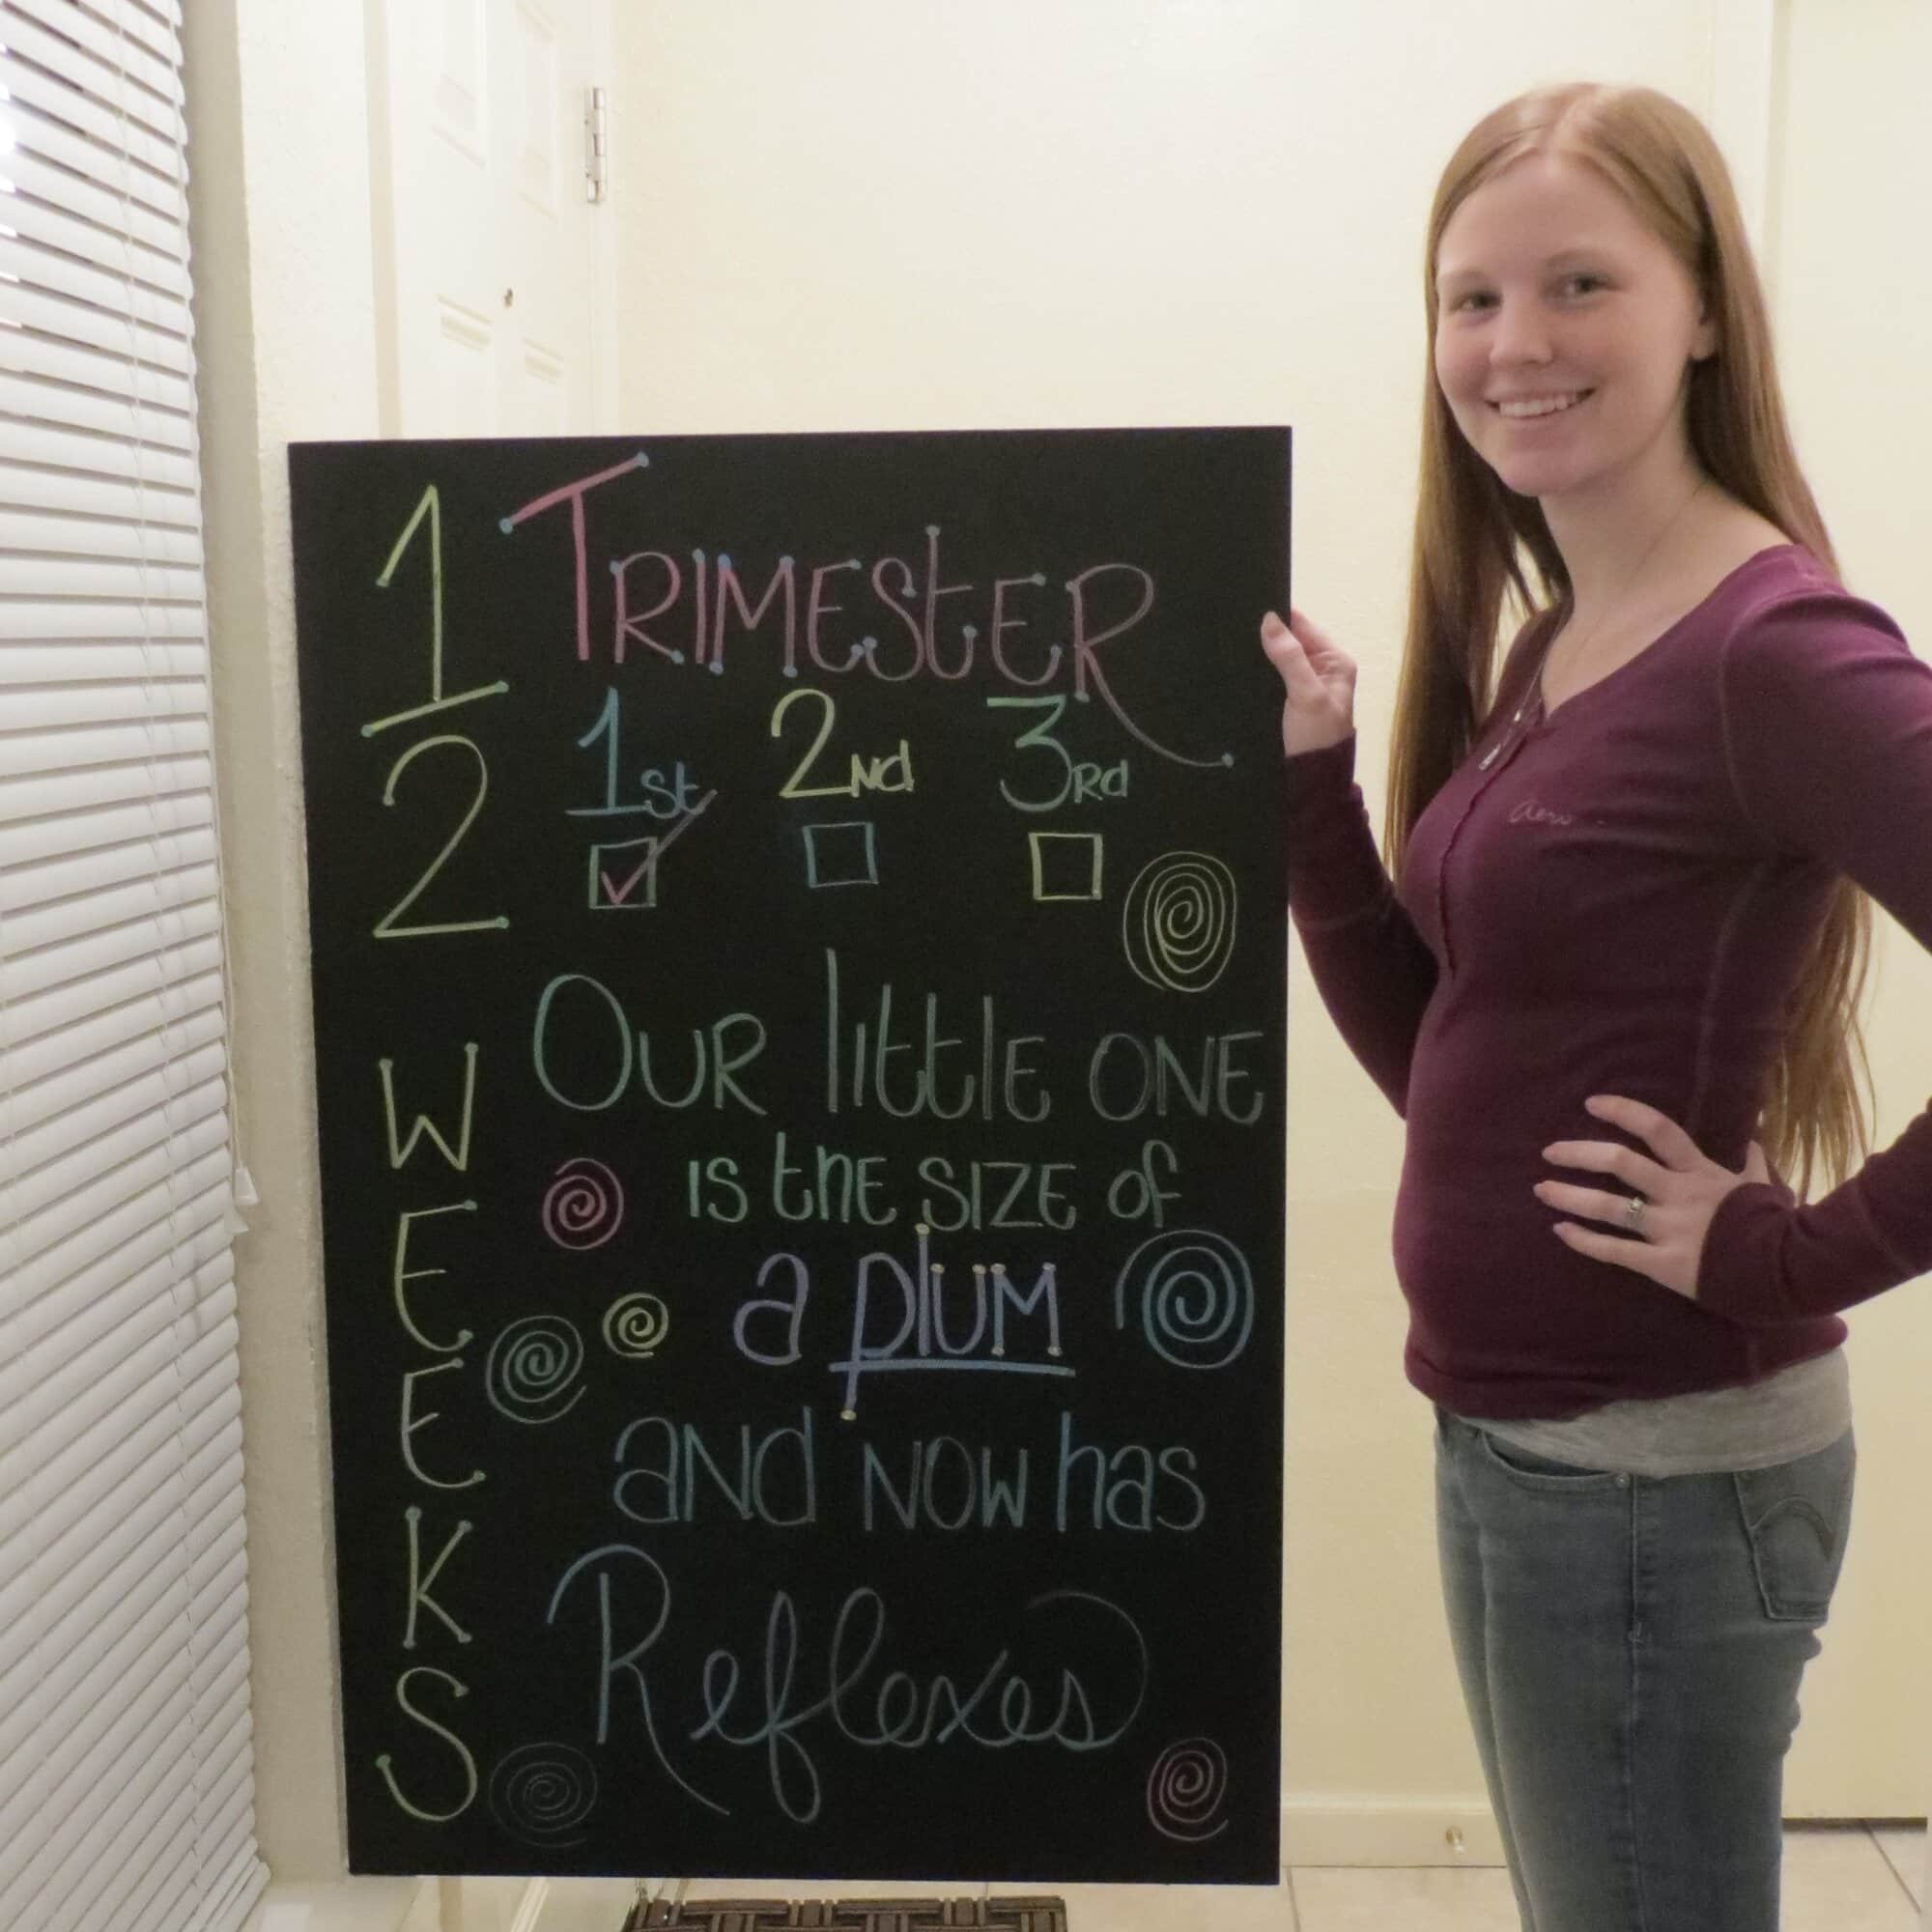 12 WEEKS
TRIMESTER
1st 2Nd 3Rd
OUR little ONE
IS the SIZE of
a plUM
aNd NOW has
Reflexes
aero